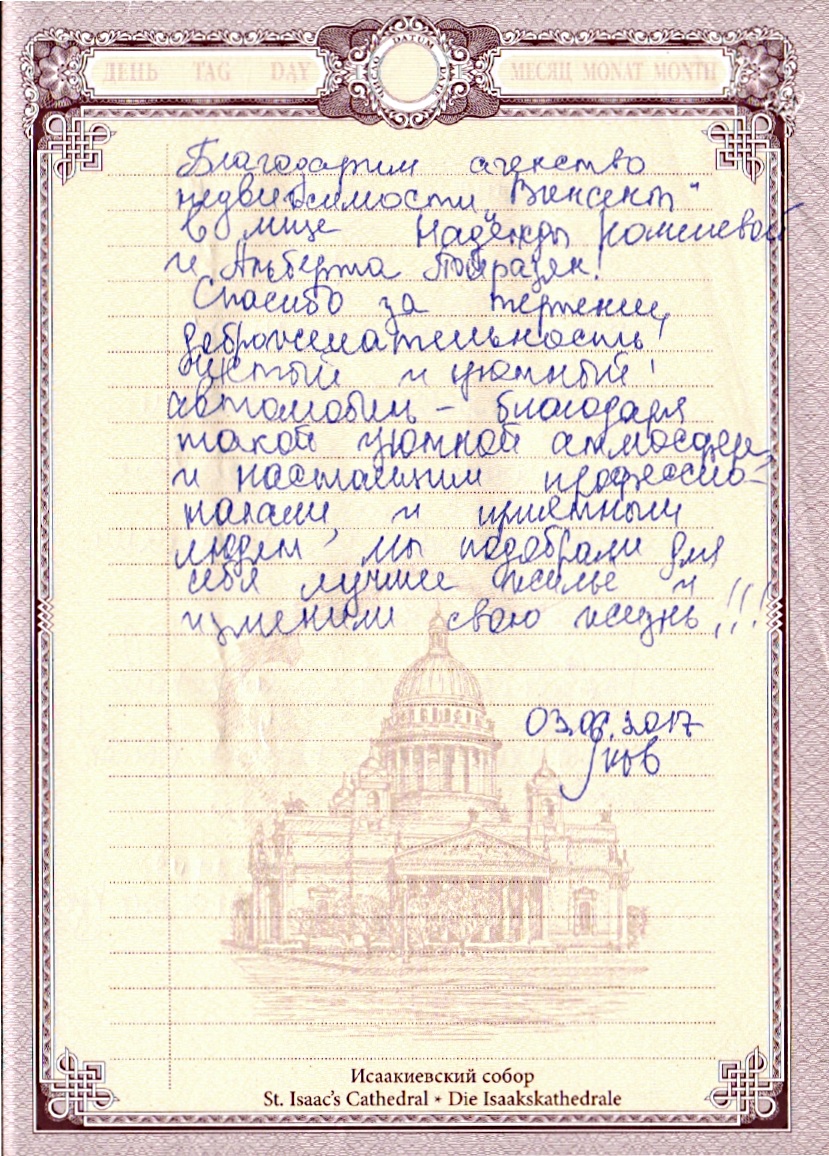 ДЕНЬ TAG DAY
DATUM
МЕСЯЦ MONAT MONTH
Благодарим агенство
недвижимости „Винсент"
в лице Надежды
и Альберта
Спасибо за терпение,
доброжелательность!
Чистый и уютный
автомобиль – благодаря
такой уютной атмосфере,
и настоящим профессио-
налами, и приятным
людям, мы подобрали для
себя лучшее жильё и
изменили свою жизнь!!!
03.06.2017
Исаакиевский собор
St. Isaac's Cathedral * Die Isaakskathedrale